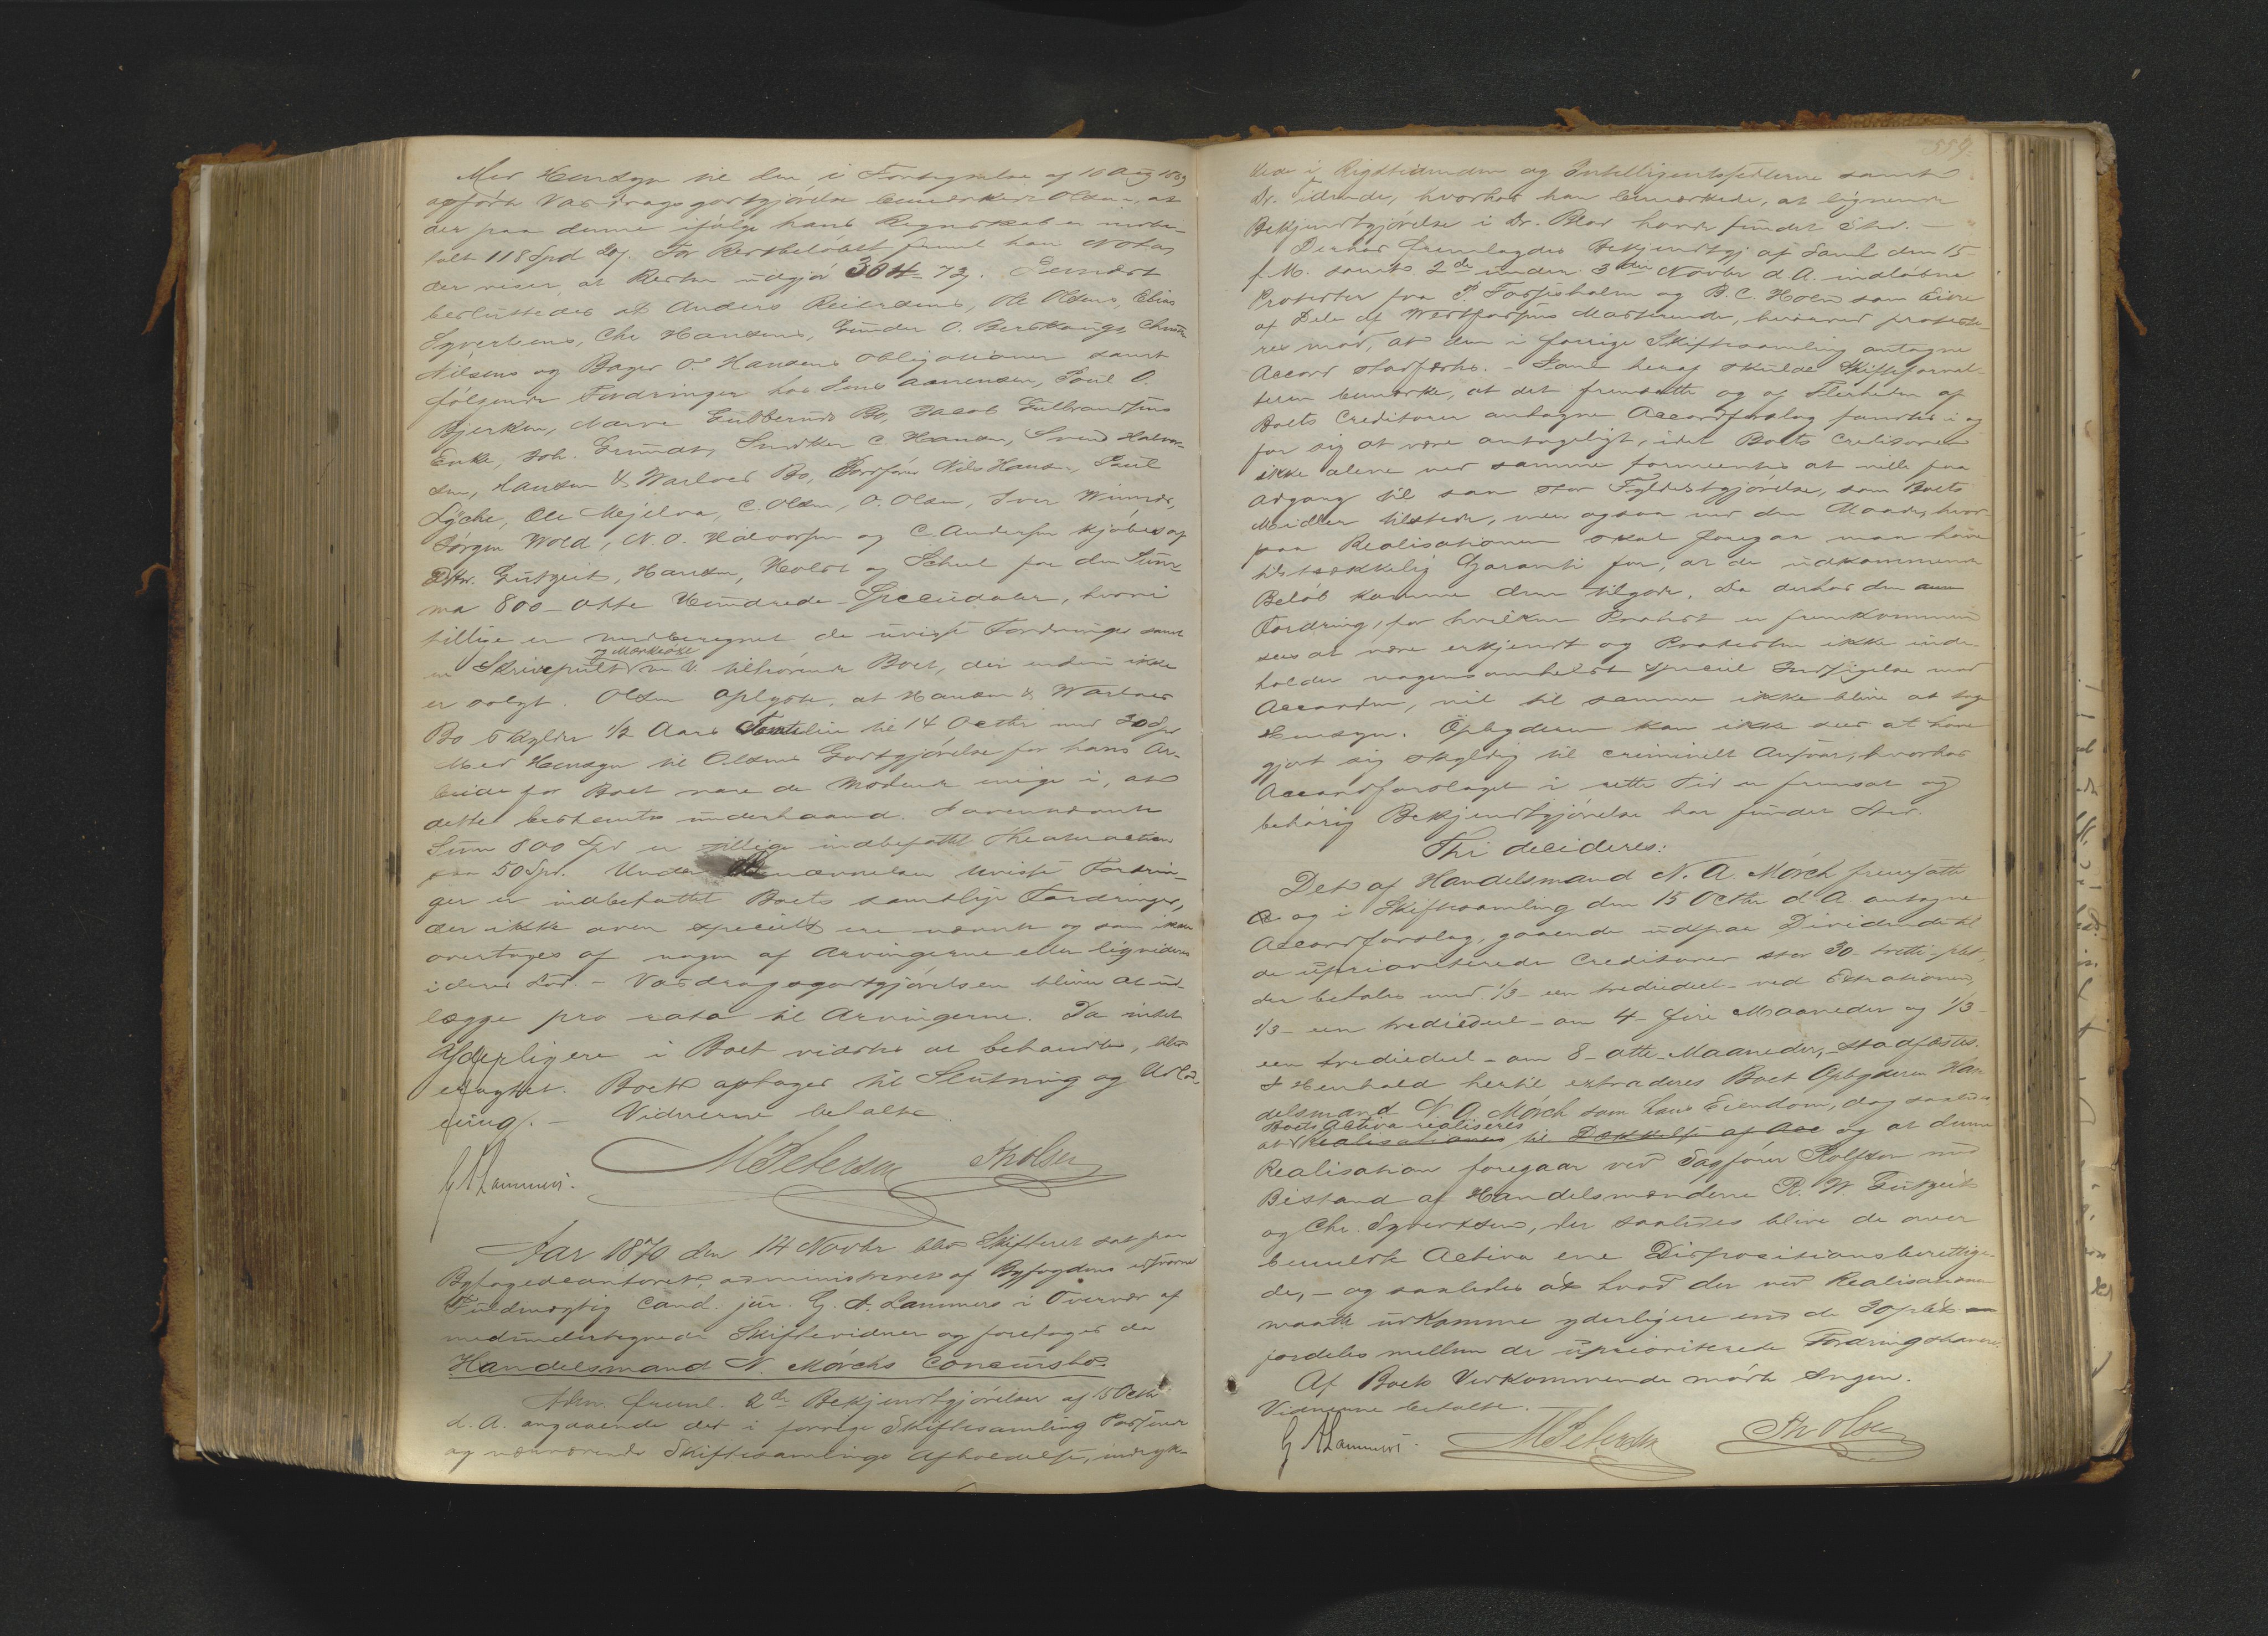 Med Hensyn til den i Forretning af 10 Aug 1869
opførte Vasdragsgodtgjørelse bemærkede Olsen, at
der paa denne ifølge hans Regnskab er indbe-
talt 118 Spd 20 s. For Restbeløbet freml. han Nota,
der viser, at Resten udgjør 304 - 72. Dernæst
besluttedes at Anders Reiersens, Ole Olsens, Elias
Syvertsens, Chr Hansens, Gunder O. Berskaugs, Christ.
Nilsens og Bager O. Hansens Obligationer samt
følgende Fordringer hos Jens Aanensen, Poul O.
Bjerken, Narve Gubberuds Bo, Jacob Gulbrandsens
Enke, Joh. Grundt, Snedker C. Hansen, Svend Halvor-
sen, Hansen & Warloes Bo, Nils Hansen, Paul
Lyche, Ole Mejelva, C. Olsen, O. Olsen, Iver
Jørgen Wold, N. O. Halvorsen og C. Andersen kjøbes af
DHr. Gutzeit, Hansen, Holst og Scheel for den Sum-
ma 800 - otte Hundrede - Speciedaler, hvori
tillige er medberegnet de uvisse Fordringer samt
og
en Skrivepult m. V. tilhørende Boet, der endnu ikke
er solgt. Olsen oplyste, at Hansen & Warloes
Bo skylder 1/2 Aars til 14 Octbr med 30 Spd
Med Hensyn til Olsens Godtgjørelse for hans Ar-
beide for Boet vare de Mødende enige i, at
dette bestemtes underhaand. I ovennævnte
Sum 800 Spd er tillige indbefattet Theateractien
paa 50 Spd. Under Benævnelsen uvisse Fordrin-
ger er indbefattet Boets samtlige Fordringer,
der ikke oven specielt ere nævnte og som ikke
overtages af nogen af Arvingerne eller ligvideres
i deres Lod. - Vasdragsgodtgjørelsen bliver at ud-
lægge pro rata til Arvingerne. Da intet
yderligere i Boet vidstes at behandle, blev
eragtet. Boet optages til Slutning og Udlod-
ning. - Vidnerne betalte.
G A Lammers. M Petersen Th Olsen
Aar 1870 den 14 Novbr blev Skifteret sat paa
Byfogedcontoret, administreret af Byfogdens edsvorne
Fuldmægtig cand. jur. G. A. Lammers i Overvær af
medundertegnede Skiftevidner og foretages da
Handelsmand N. Mørchs Concursbo.
Adm. freml. 2de Bekjendtgjørelser af 15 Octbr
d. A. angaaende det i forrige Skiftesamling Passerede
og nærværende Skiftesamlings Afholdelse, indryk-
559.
kede i Rigstidenden og Intelligentssedlerne samt
Dr. Tidende, hvorhos han bemærkede, at lignende
Bekjendtgjørelse i Dr. Blad havde fundet Sted. -
Derhos fremlagdes Bekjendtgj. af Saml. den 15
f. M. samt 2de under 3die Novbr d. A. indløbne
Protester fra og B. C. Holm som Eiere
af Dele af Masterende, hvorved proteste-
res mod, at den i forrige Skiftesamling antagne
Accord stadfæstes. - I Anl. heraf skulde Skifteforval-
teren bemærke, at det fremsatte og af Flerheden af
Boets Creditorer antagne Accordforslag fandtes i og
for sig at være antageligt, idet Boets Creditorer
ikke alene ved samme formeentes at ville faa
Adgang til saa stor Fyldestgjørelse, som Boets
Midler tilstede, men ogsaa ved den Maade, hvor-
paa Realisationen skal foregaa man have
tilstrækkelig Garanti for, at de udkommende
Beløb komme dem tilgode. Da derhos den
Fordring, for hvilken Protest er fremkommen
sees at være erkjendt og Protesten ikke inde-
holder nogensomhelst speciel Indsigelse mod
Accorden, vil til samme ikke blive at tage
Hensyn. Opbyderen kan ikke sees at have
gjort sig skyldig til criminelt Ansvar, hvorhos
Accordforslaget i rette Tid er fremsat og
behørig Bekjendtgjørelse har fundet Sted.
Thi decideres:
Det af Handelsmand N. A. Mørch fremsatte
og i Skiftesamling den 15 Octbr d. A. antagne
Accordforslag, gaaende ud paa Dividende til
de upriioriterede Creditorer stor 30 - tretti - pCt,
der betales med 1/3 - een trediedeel - ved Extraditionen,
1/3 - een trediedeel - om 4 - fire Maaneder og 1/3 -
een trediedeel - om 8 - otte - Maaneder, - stadfæstes.
I Henhold hertil extraderes Boet Opbyderen Han-
delsmand N. A. Mørch som hans Eiendom, dog saaledes
Boets Activa realiseres
at Realisationen til Dækkelse af Acc og at denne
Realisation foregaar ved Sagfører Rolfsen med
Bistand af Handelsmændene R. W. Gutzeit
og Chr. Syvertsen, der saaledes blive de over
bemeldte Activa ene Dispositionsberettige-
de, - og saaledes at hvad der ved Realisationen
maatte udkomme yderligere end de 30 pCt
fordeles mellem de uprioriterede Fordringshavere.
Af Boets Vedkommende mødte Ingen.
Vidnerne betalte.
G A Lammers. M Petersen Th Olsen